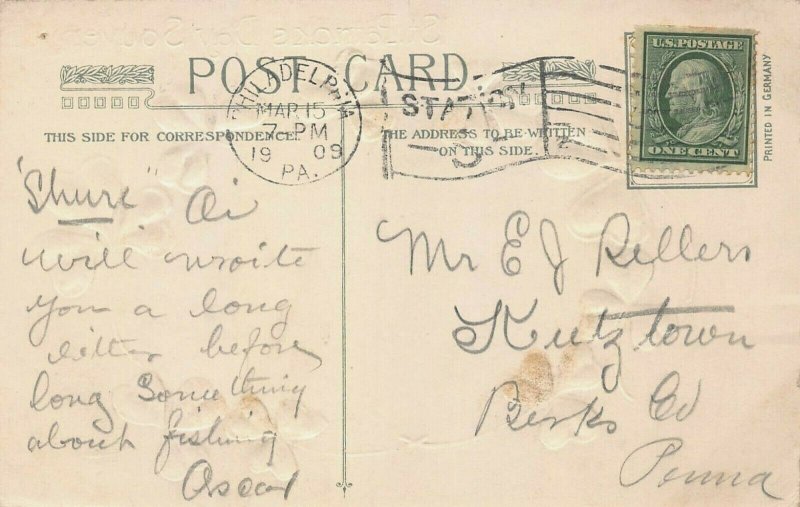 POST CARD
PHILADELPHIA
MAR 15
7-PM
19 09
PA.
STATION
U.S. POSTAGE
ONE CENT
PRINTED IN GERMANY
THIS SIDE FOR CORRESPONDENCE.
THE ADDRESS TO BE WRITTEN
ON THIS SIDE.
"Shure" Oi
will wroite
you a long
litter before
long Something
about fishing
Oscar
Mr E J Rellers
Kutztown
Berks Co
Penna